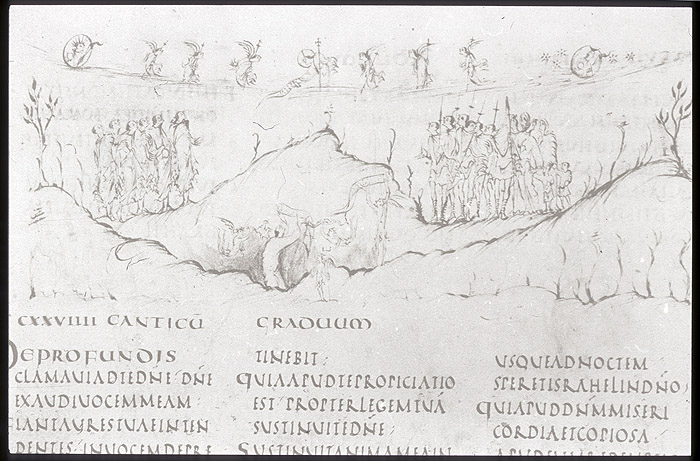 CXXVIIII CANTICŪ GRADUUM
DEPROFUNDIS
CLAMAUIADTEDN̄E DN̄E
EXAUDIUOCEMMEAM:
FIANTAURESTUAEINTEN
DENTES INUOCEMDEPRE
TINEBIT:
QUIAAPUDTEPROPICIATIO
EST PROPTERLEGEMTUĀ
SUSTINUITEDN̄E:
SUSTINUITANIMAMEAIN
USQUEADNOCTEM
SPERETISRAHELINDN̄O:
QUIAPUDDN̄MMISERI
CORDIAETCOPIOSA